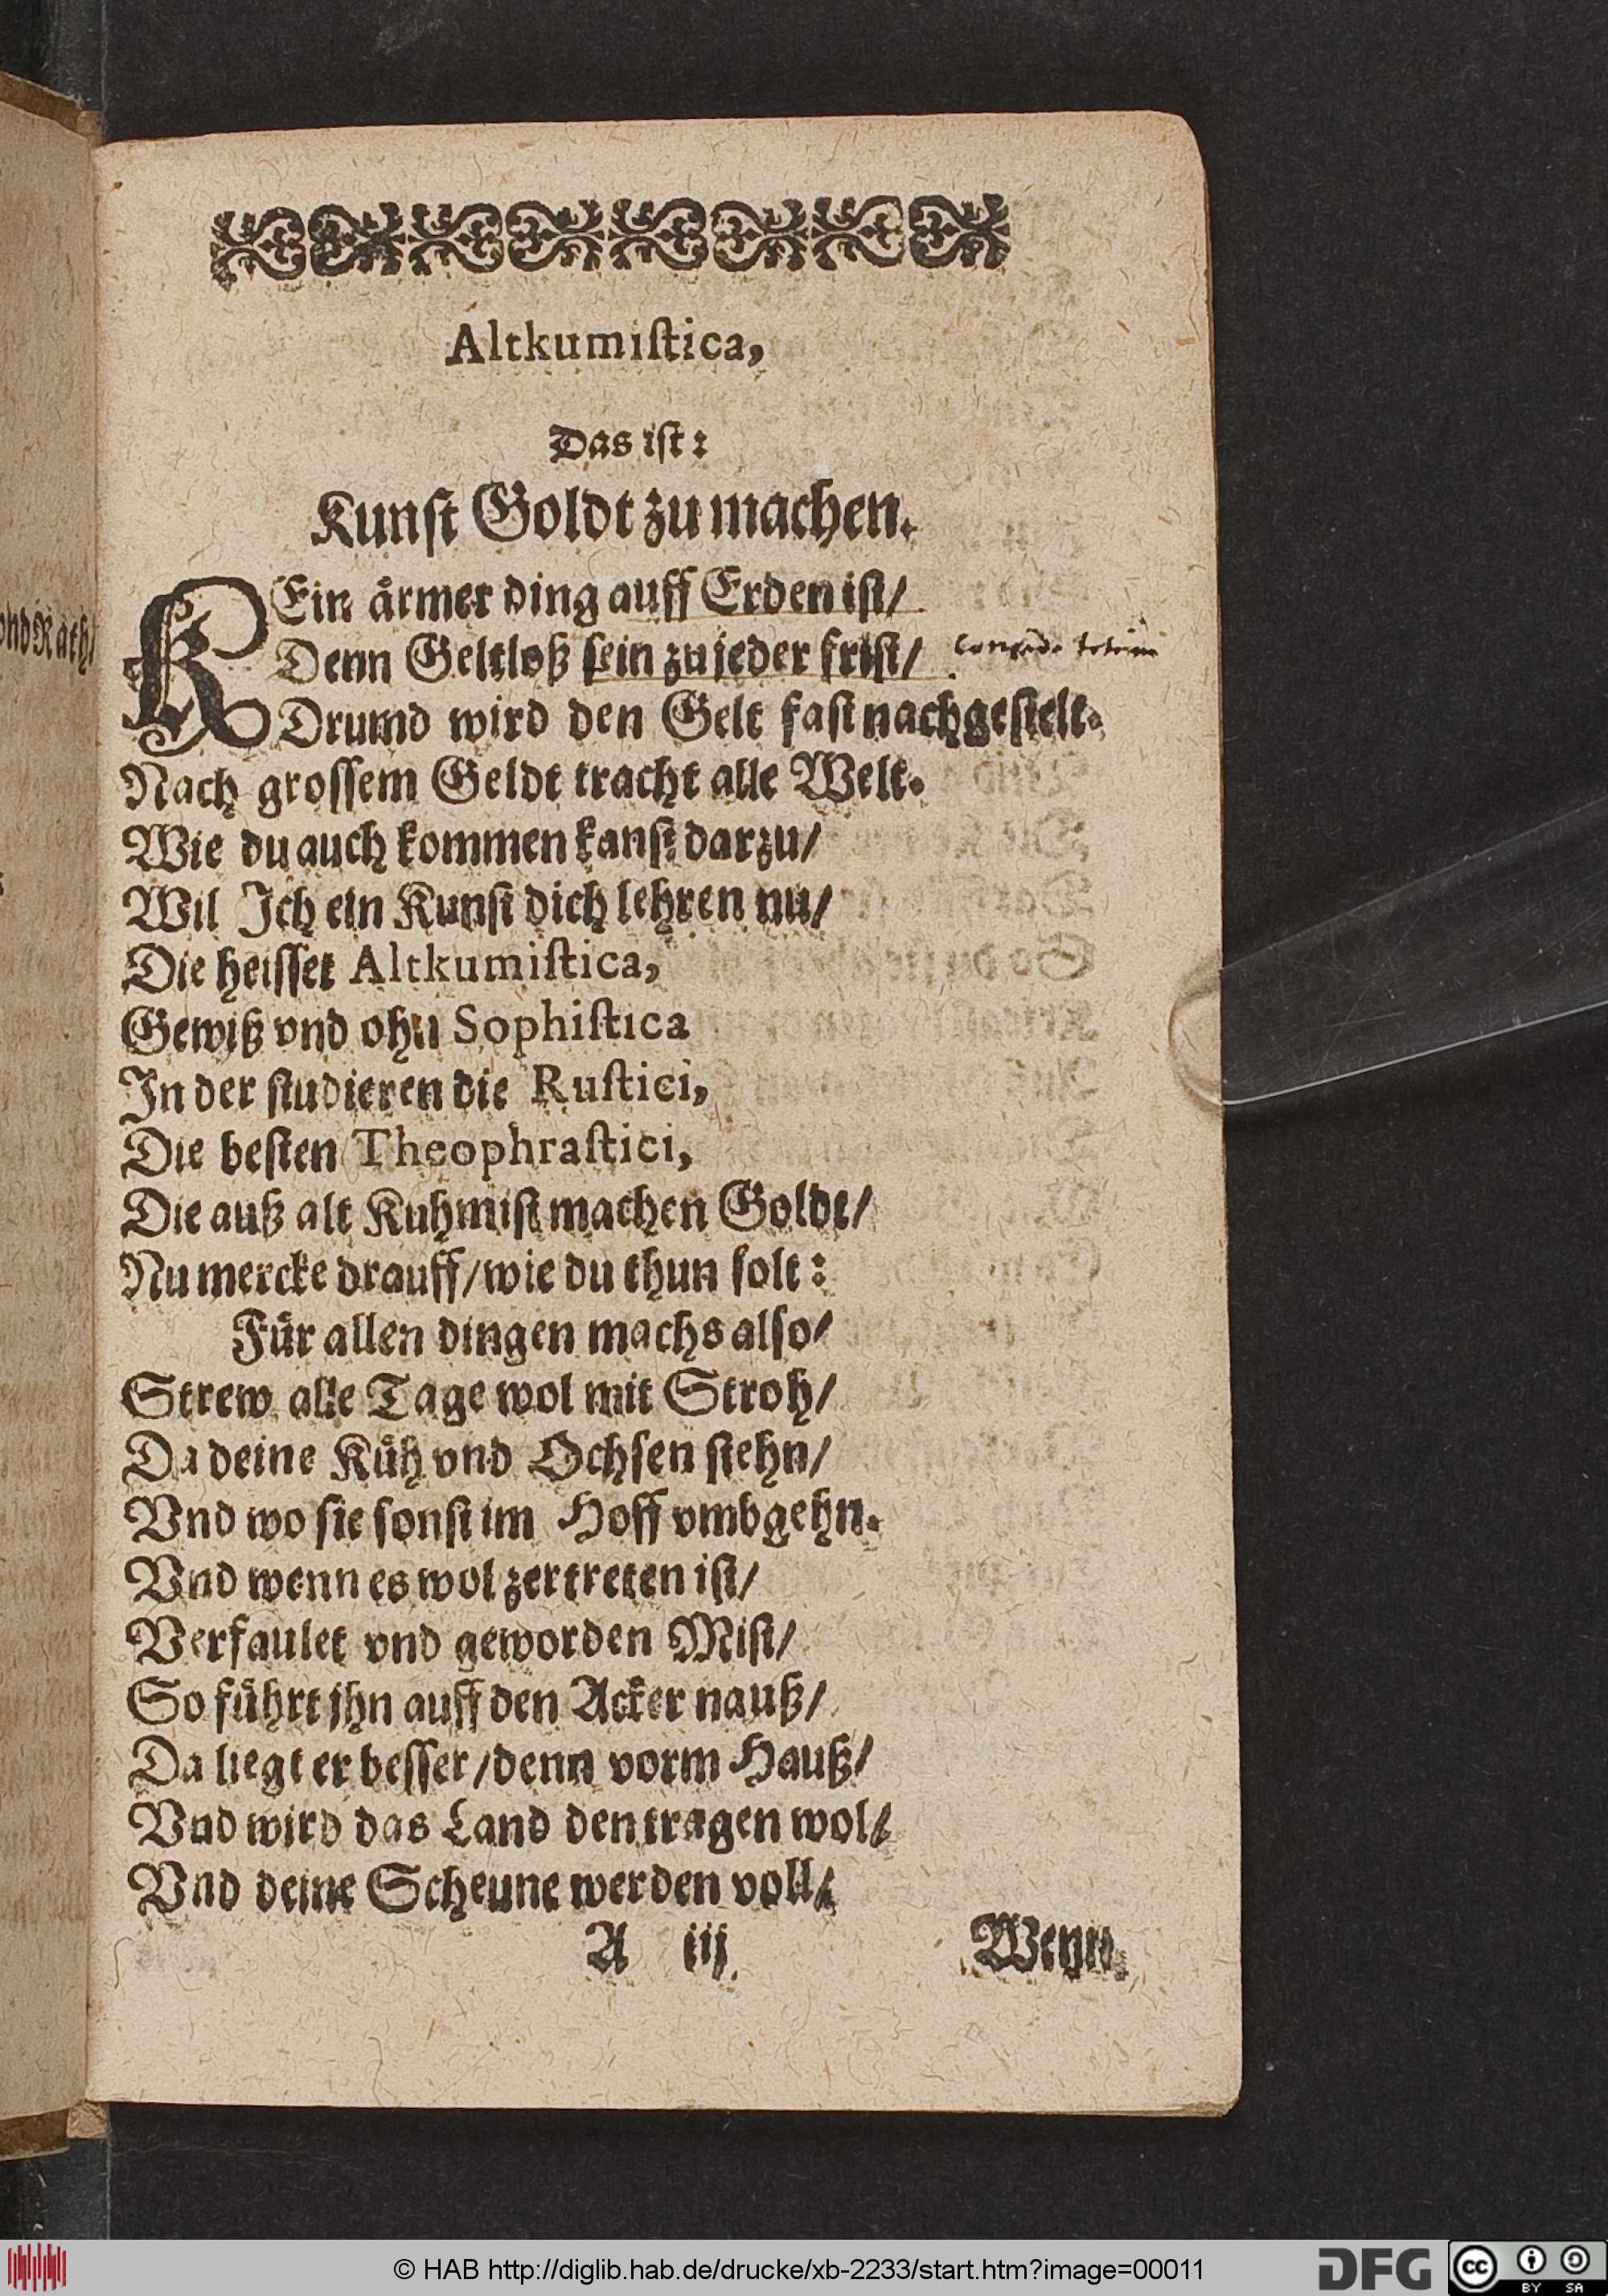 Altkumiſtica,
Das iſt:
Kunſt Goldt zu machen.
KEin aͤrmer ding auff Erden iſt/
Denn Geltloß ſein zu jeder friſt/
Drumd wird den Gelt faſt nachgeſtelt.
Nach groſſem Geldt tracht alle Welt.
Wie du auch kommen kanſt darzu/
Wil Ich ein Kunſt dich lehren nu/
Die heiſſet Altkumiſtica,
Gewiß vnd ohn Sophiſtica
In der ſtudieren die Ruſtici,
Die beſten Theophraſtici,
Die auß alt Kuhmiſt machen Goldt/
Nu mercke drauff/wie du thun ſolt:
Fuͤr allen dingen machs alſo/
Strew alle Tage wol mit Stroh/
Da deine Kuͤh vnd Ochſen ſtehn/
Vnd wo ſie ſonſt im Hoff vmbgehn.
Vnd wenn es wol zertreten iſt/
Verfaulet vnd geworden Miſt/
So fuͤhrt jhn auff den Acker nauß/
Da liegt er beſſer/denn vorm Hauß/
Vnd wird das Land den tragen wol/
Vnd deine Scheune werden voll/
A iij
Wenn
vnd Raͤth/
© HAB http://diglib.hab.de/drucke/xb-2233/start.htm?image=00011
DFG
cc BY SA